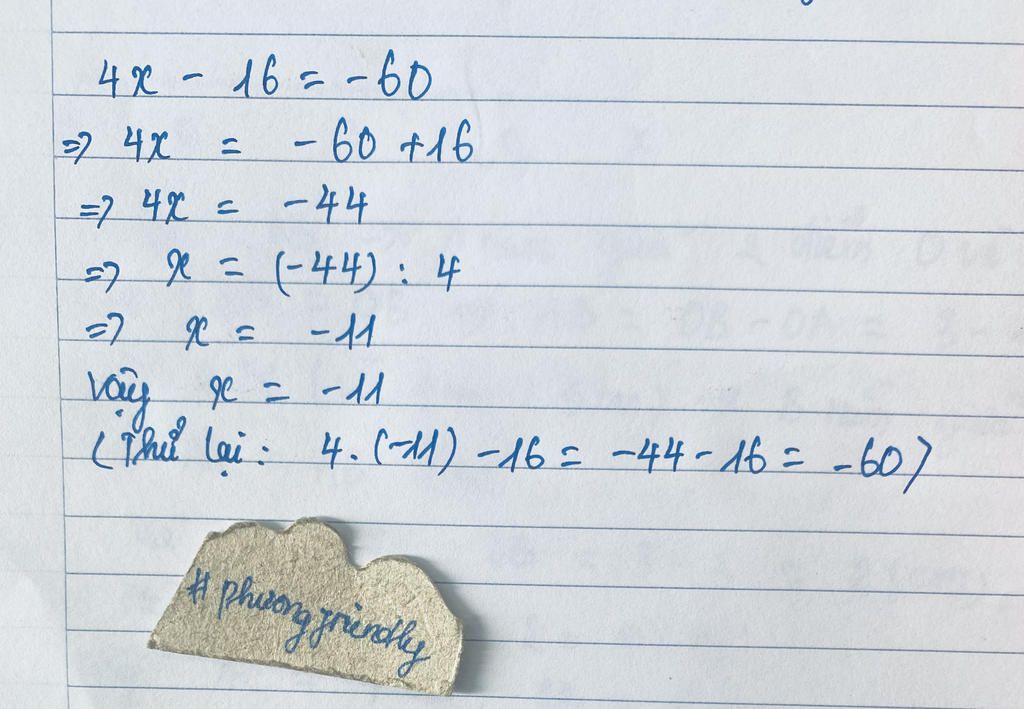 4x - 16 = -60
=> 4x = -60 + 16
=> 4x = -44
=> x = (-44) : 4
=> x = -11
Vậy x = -11
(Thử lại: 4. (-11) - 16 = -44 - 16 = -60)
#phuongfriendly